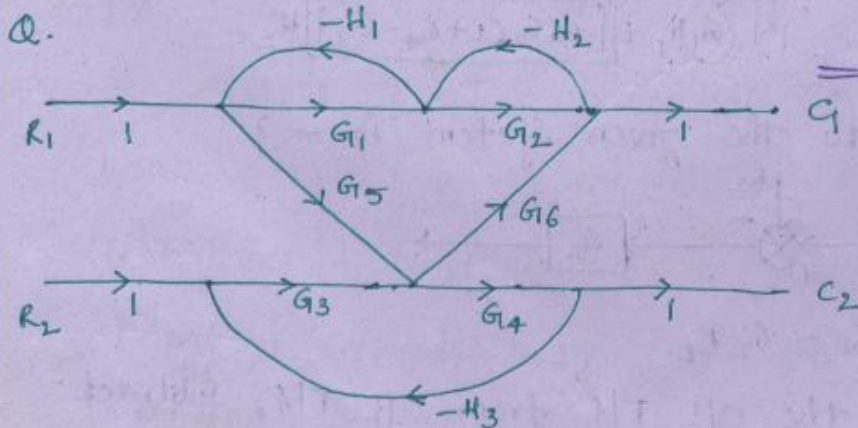 Q.
-H1 -H2
R1 1 G1 G2 1 C1
G5 G6
R2 1 G3 G4 1 C2
-H3